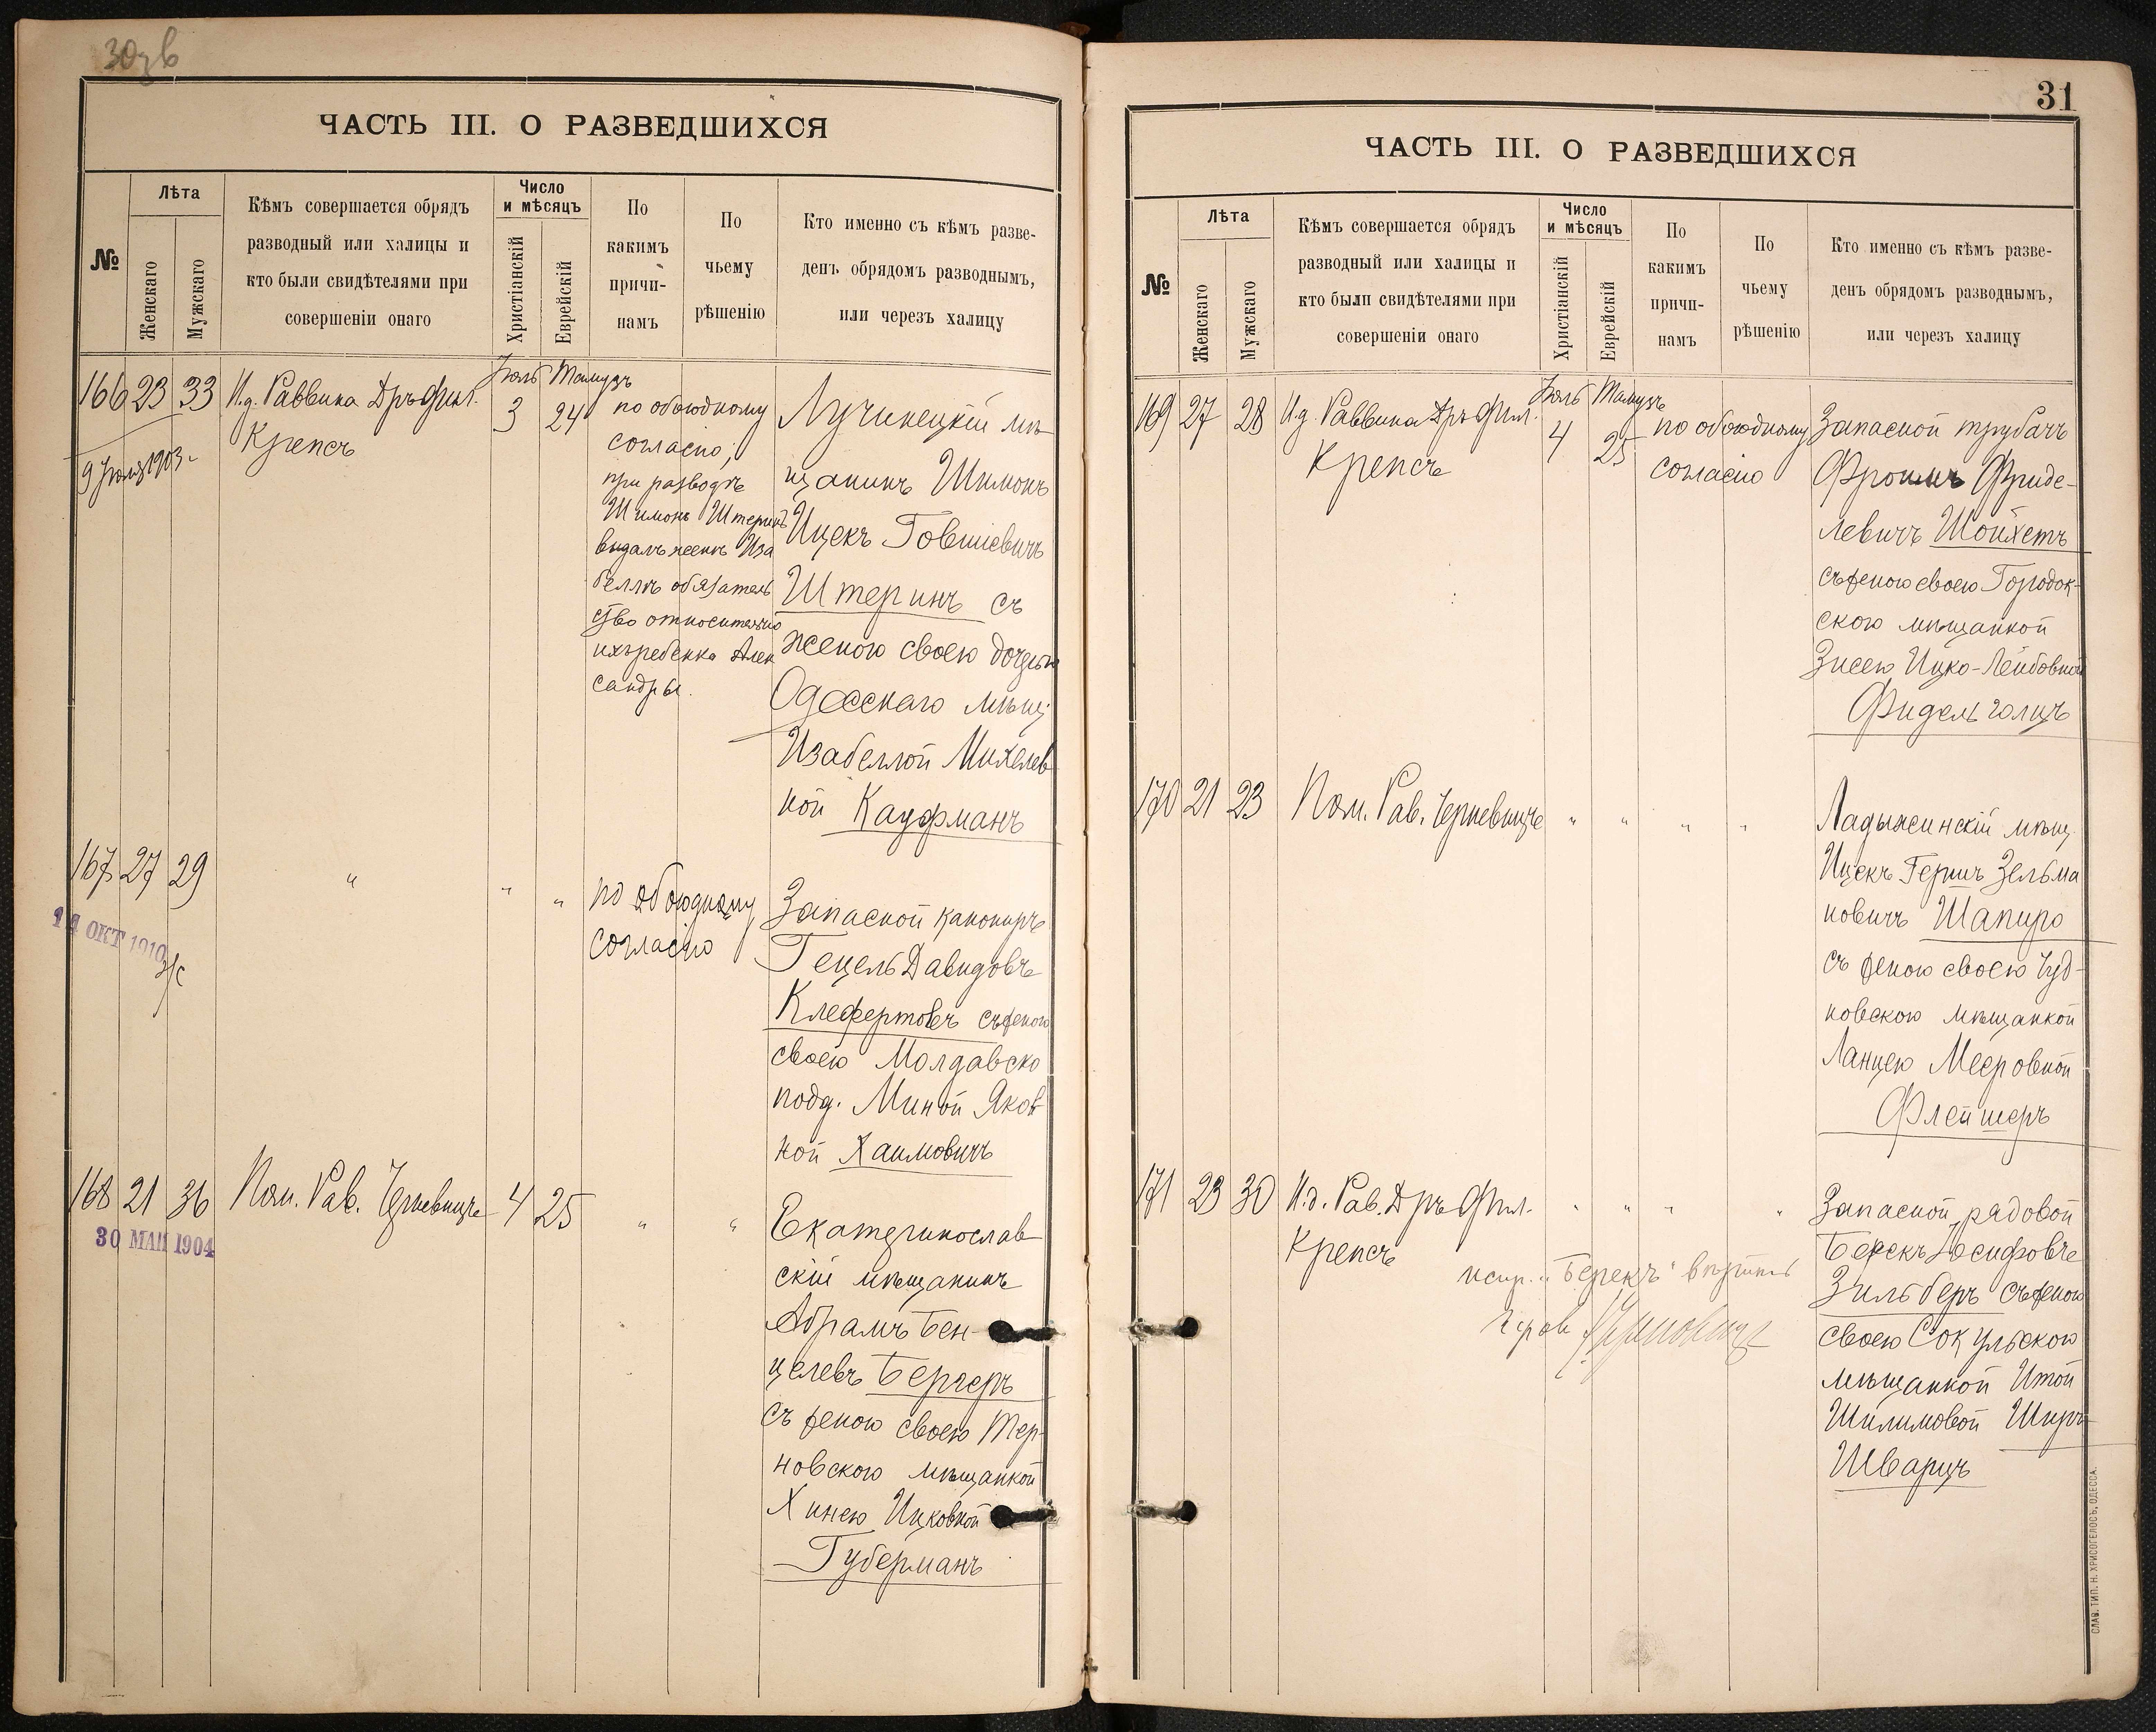 ЧАСТЬ III. О РАЗВЕДШИХСЯ
№
Лѣта
Женскаго
Мужскаго
Кѣмъ совершается обрядъ
разводный или халицы и
кто были свидѣтелями при
совершеніи онаго
Число
и мѣсяцъ
Христіанскій
Еврейскій
По
какимъ
причи-
намъ
По
чьему
рѣшенію
Кто именно съ кѣмъ разве-
денъ обрядомъ разводнымъ,
или черезъ халицу
166 23 33 И.д. Раввина Дръ Фил.
Крепсъ
9 Іюля 1903 г.
Іюль Тамузъ
3 24
по обоюдному
согласію,
при разводѣ
Шимонъ Штеринъ
выдалъ женѣ Иза
беллѣ обязатель
ство относительно
ихъ ребенка Алек
сандры.
Лучинецкій мѣ
щанинъ Шимонъ
Ицекъ Говшіевичъ
Штеринъ съ
женою своею дочерью
Одесскаго мѣщ.
Изабеллой Михелев
ной Кауфманъ
167 27 29 " " "
14 ОКТ 1910
по обоюдному
согласію
Запасной канониръ
Гецель Давидовъ
Клефертовъ съ женою
своею Молдавско
подд. Миной Яков
ной Хаимовичъ
168 21 36 Пом. Рав. Черневицъ 4 25 " "
30 МАЙ 1904
Екатеринослав
скій мѣщанинъ
Абрамъ Бен-
целевъ Бергеръ
съ женою своею Тер-
новскою мѣщанкой
Хинею Ицковной
Губерманъ
31
ЧАСТЬ III. О РАЗВЕДШИХСЯ
№
Лѣта
Женскаго
Мужскаго
Кѣмъ совершается обрядъ
разводный или халицы и
кто были свидѣтелями при
совершеніи онаго
Число
и мѣсяцъ
Христіанскій
Еврейскій
По
какимъ
причи-
намъ
По
чьему
рѣшенію
Кто именно съ кѣмъ разве-
денъ обрядомъ разводнымъ,
или черезъ халицу
169 27 28 И.д. Раввина Дръ Фил.
Крепсъ
Іюль Тамузъ
4 25
по обоюдному
согласію
Запасной трубачъ
Фроимъ Фриде-
левичъ Шойхетъ
съ женою своею Городок-
скою мѣщанкой
Зисею Ицко-Лейбовной
Фидельгольцъ
170 21 23 Пом. Рав. Черневицъ " " " "
Ладыжинскій мѣщ.
Ицекъ Гершъ Зельма
новичъ Шапиро
съ женою своею Чуд-
новскою мѣщанкой
Ланцею Мееровной
Флейшеръ
171 23 30 И.д. Рав. Дръ Фил. " " " "
Крепсъ
испр. "Берекъ" вѣрить
Запасной рядовой
Берекъ Іосифовъ
Зильберъ съ женою
своею Сокульскою
мѣщанкой Итой
Шилимовой Ширъ-
Шварцъ
СЛАВ. ТИП. Н. ХРИСОГЕЛОСЪ, ОДЕССА.